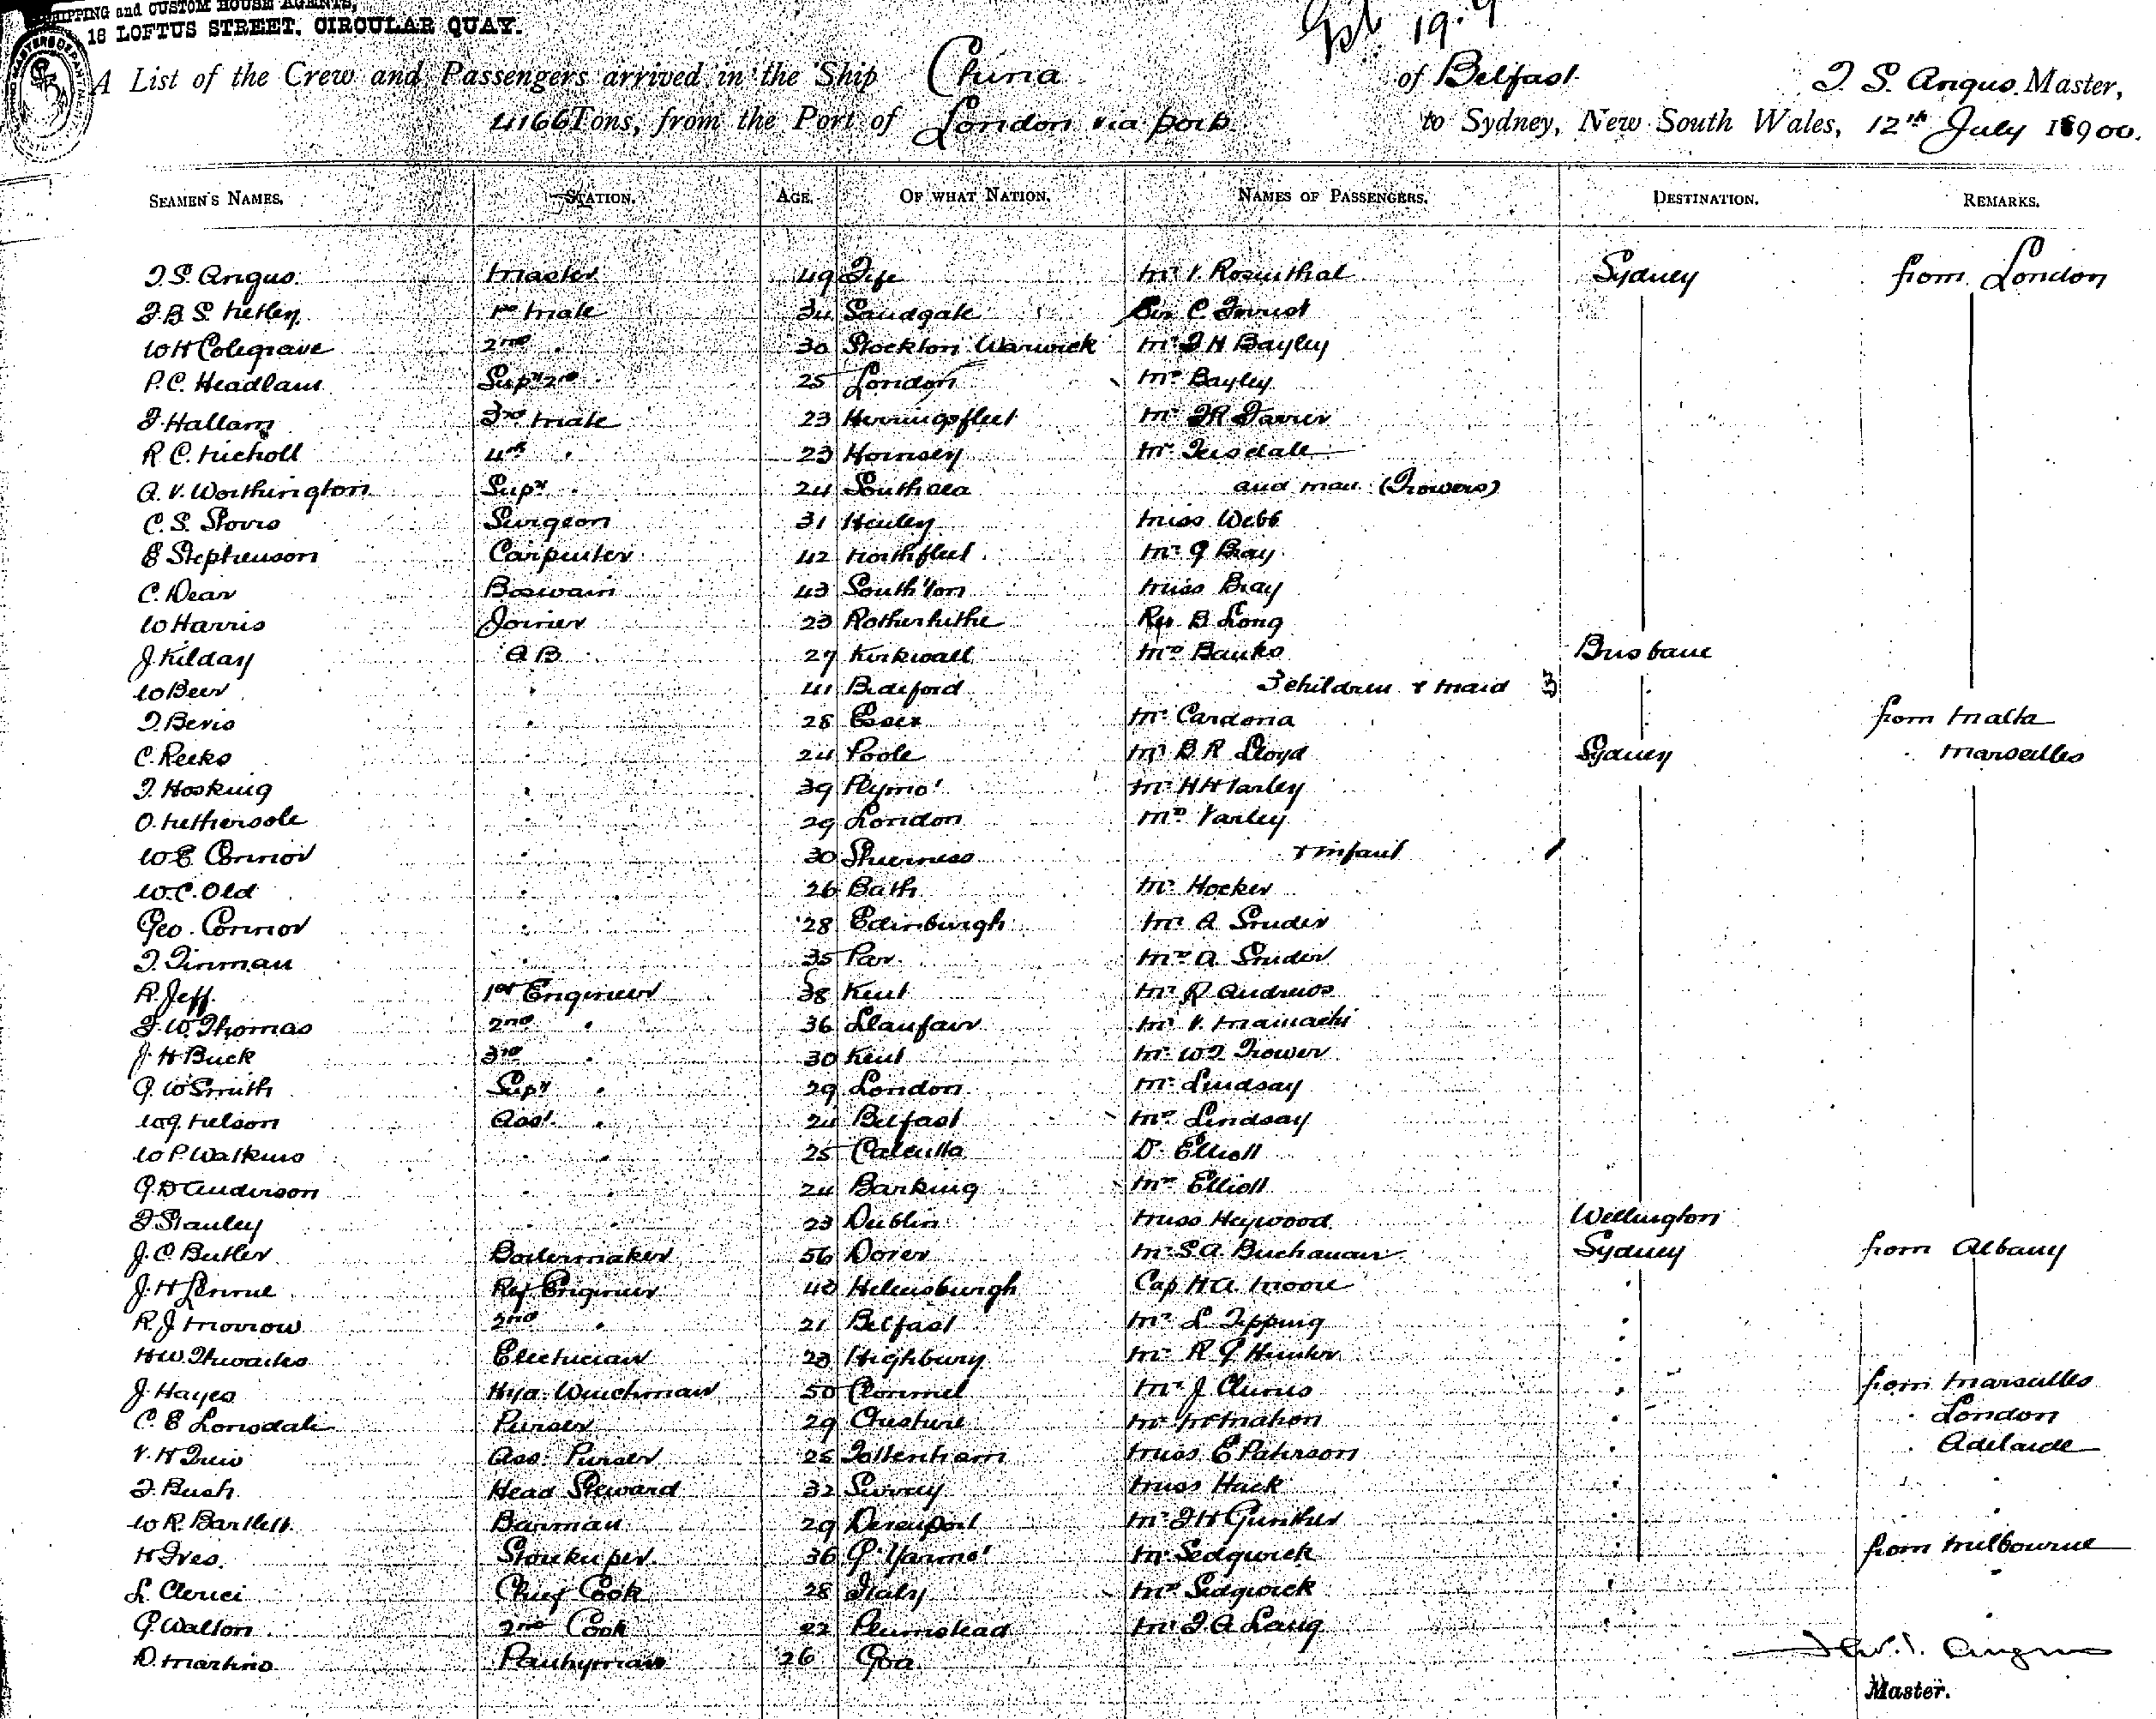 SHIPPING and CUSTOM HOUSE AGENTS,
18 LOFTUS STREET, CIRCULAR QUAY.
19.9
A List of the Crew and Passengers arrived in the Ship China of Belfast T. S. Angus Master,
4166 Tons, from the Port of London via ports to Sydney, New South Wales, 12th July 1900.
SEAMEN'S NAMES. STATION. AGE. OF WHAT NATION. NAMES OF PASSENGERS. DESTINATION. REMARKS.
T. S. Angus Master 49 Fife Mr V. Rosenthal Sydney from London
F. B. S. Hetley 1st Mate 34 Sandgate C
W H Colegrave 2nd " 30 Stockton Warwick Mr F H Bayley
P. C. Headlam Supy 2nd 25 London Mrs Bayley
F Hallam 3rd Mate 23 Herringfleet Mr F R Farrer
R C. Nicholl 4th " 23 Hornsey Mr Teesdale
A. V. Worthington Supy " 24 Southsea and man (Trowers)
C. S. Surgeon 31 Henley Miss Webb
E Stephenson Carpenter 42 Northfleet Mr G Bray
C. Dear Boswain 43 South'ton Miss Bray
W Harris Joiner 23 Rotherhithe Rev B Long
J. Kilday A B 27 Kirkwall Mrs Banks Brisbane
W Beer " 41 Bideford 3 children & maid 3 "
T. Bevis " 28 Essex Mr Cardona " from Malta
C. Reeks " 24 Poole Mr B R Lloyd Sydney " Marseilles
T. Hosking " 39 Plymo' Mr H H Varley
O. Nethersole " 29 London Mrs Varley
W E Connor " 30 Sheerness & infant 1
W. C. Old " 26 Bath Mr Hocker
Geo. Connor " 28 Edinburgh Mr A
T. Tinman " 35 Par Mrs A
R. Jeff 1st Engineer 38 Kent Mr R Andrews
F. W. Thomas 2nd " 36 Llanfair Mr V.
J. H Buck 3rd " 30 Kent Mr W T Trower
G. W Smith Supy " 29 London Mr Lindsay
W G. Nelson Asst " 24 Belfast Mrs Lindsay
W P. Watkins " " 25 Calcutta Dr Elliott
G. D Anderson " " 24 Barking Mrs Elliott
F Stanley " " 23 Dublin Miss Heywood Wellington
J. C Butler Boilermaker 56 Dover Mr S. A. Buchanan Sydney from Albany
J. H Ref Engineer 40 Helensburgh Cap H A Moore "
R. J Morrow 2nd " 21 Belfast Mr L Tipping "
H W. Thwaites Electrician 23 Highbury Mr R G Hunter "
J. Hayes Hyd. Winchman 50 Clonmel Mr J Clunis " from Marseilles
C. E Lonsdale Purser 29 Cheshire Mr McMahon " " London
V. H Ass: Purser 25 Tottenham Miss E Paterson " " Adelaide
F. Bush Head Steward 32 Surrey Miss Hack " " "
W R. Bartlett Barman 29 Devonport Mr F H Gunther " "
H Ives Storekeeper 36 G' Yarmo' Mr Sedgwick " from Melbourne
L. Clerici Chief Cook 28 Italy Mrs Sedgwick " "
G. Walton 2nd Cook 22 Plumstead Mr F. A Lang " "
D. Martino Pantryman 26 Goa
Angus
Master.